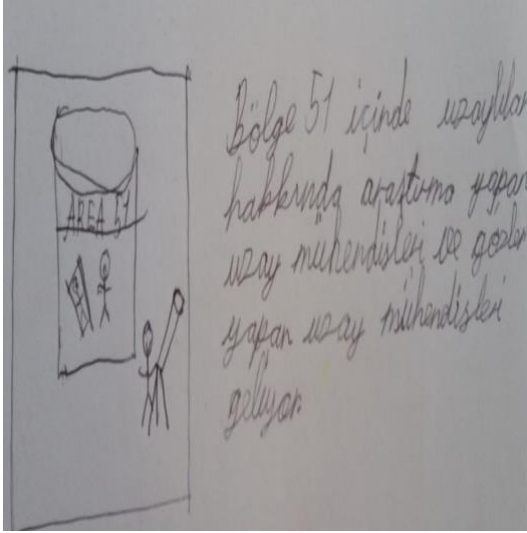 AREA 51
Bölge 51 içinde uzaylılar
hakkında araştırma yapan
uzay mühendisleri ve gözlem
yapan uzay mühendisleri
geliyor.